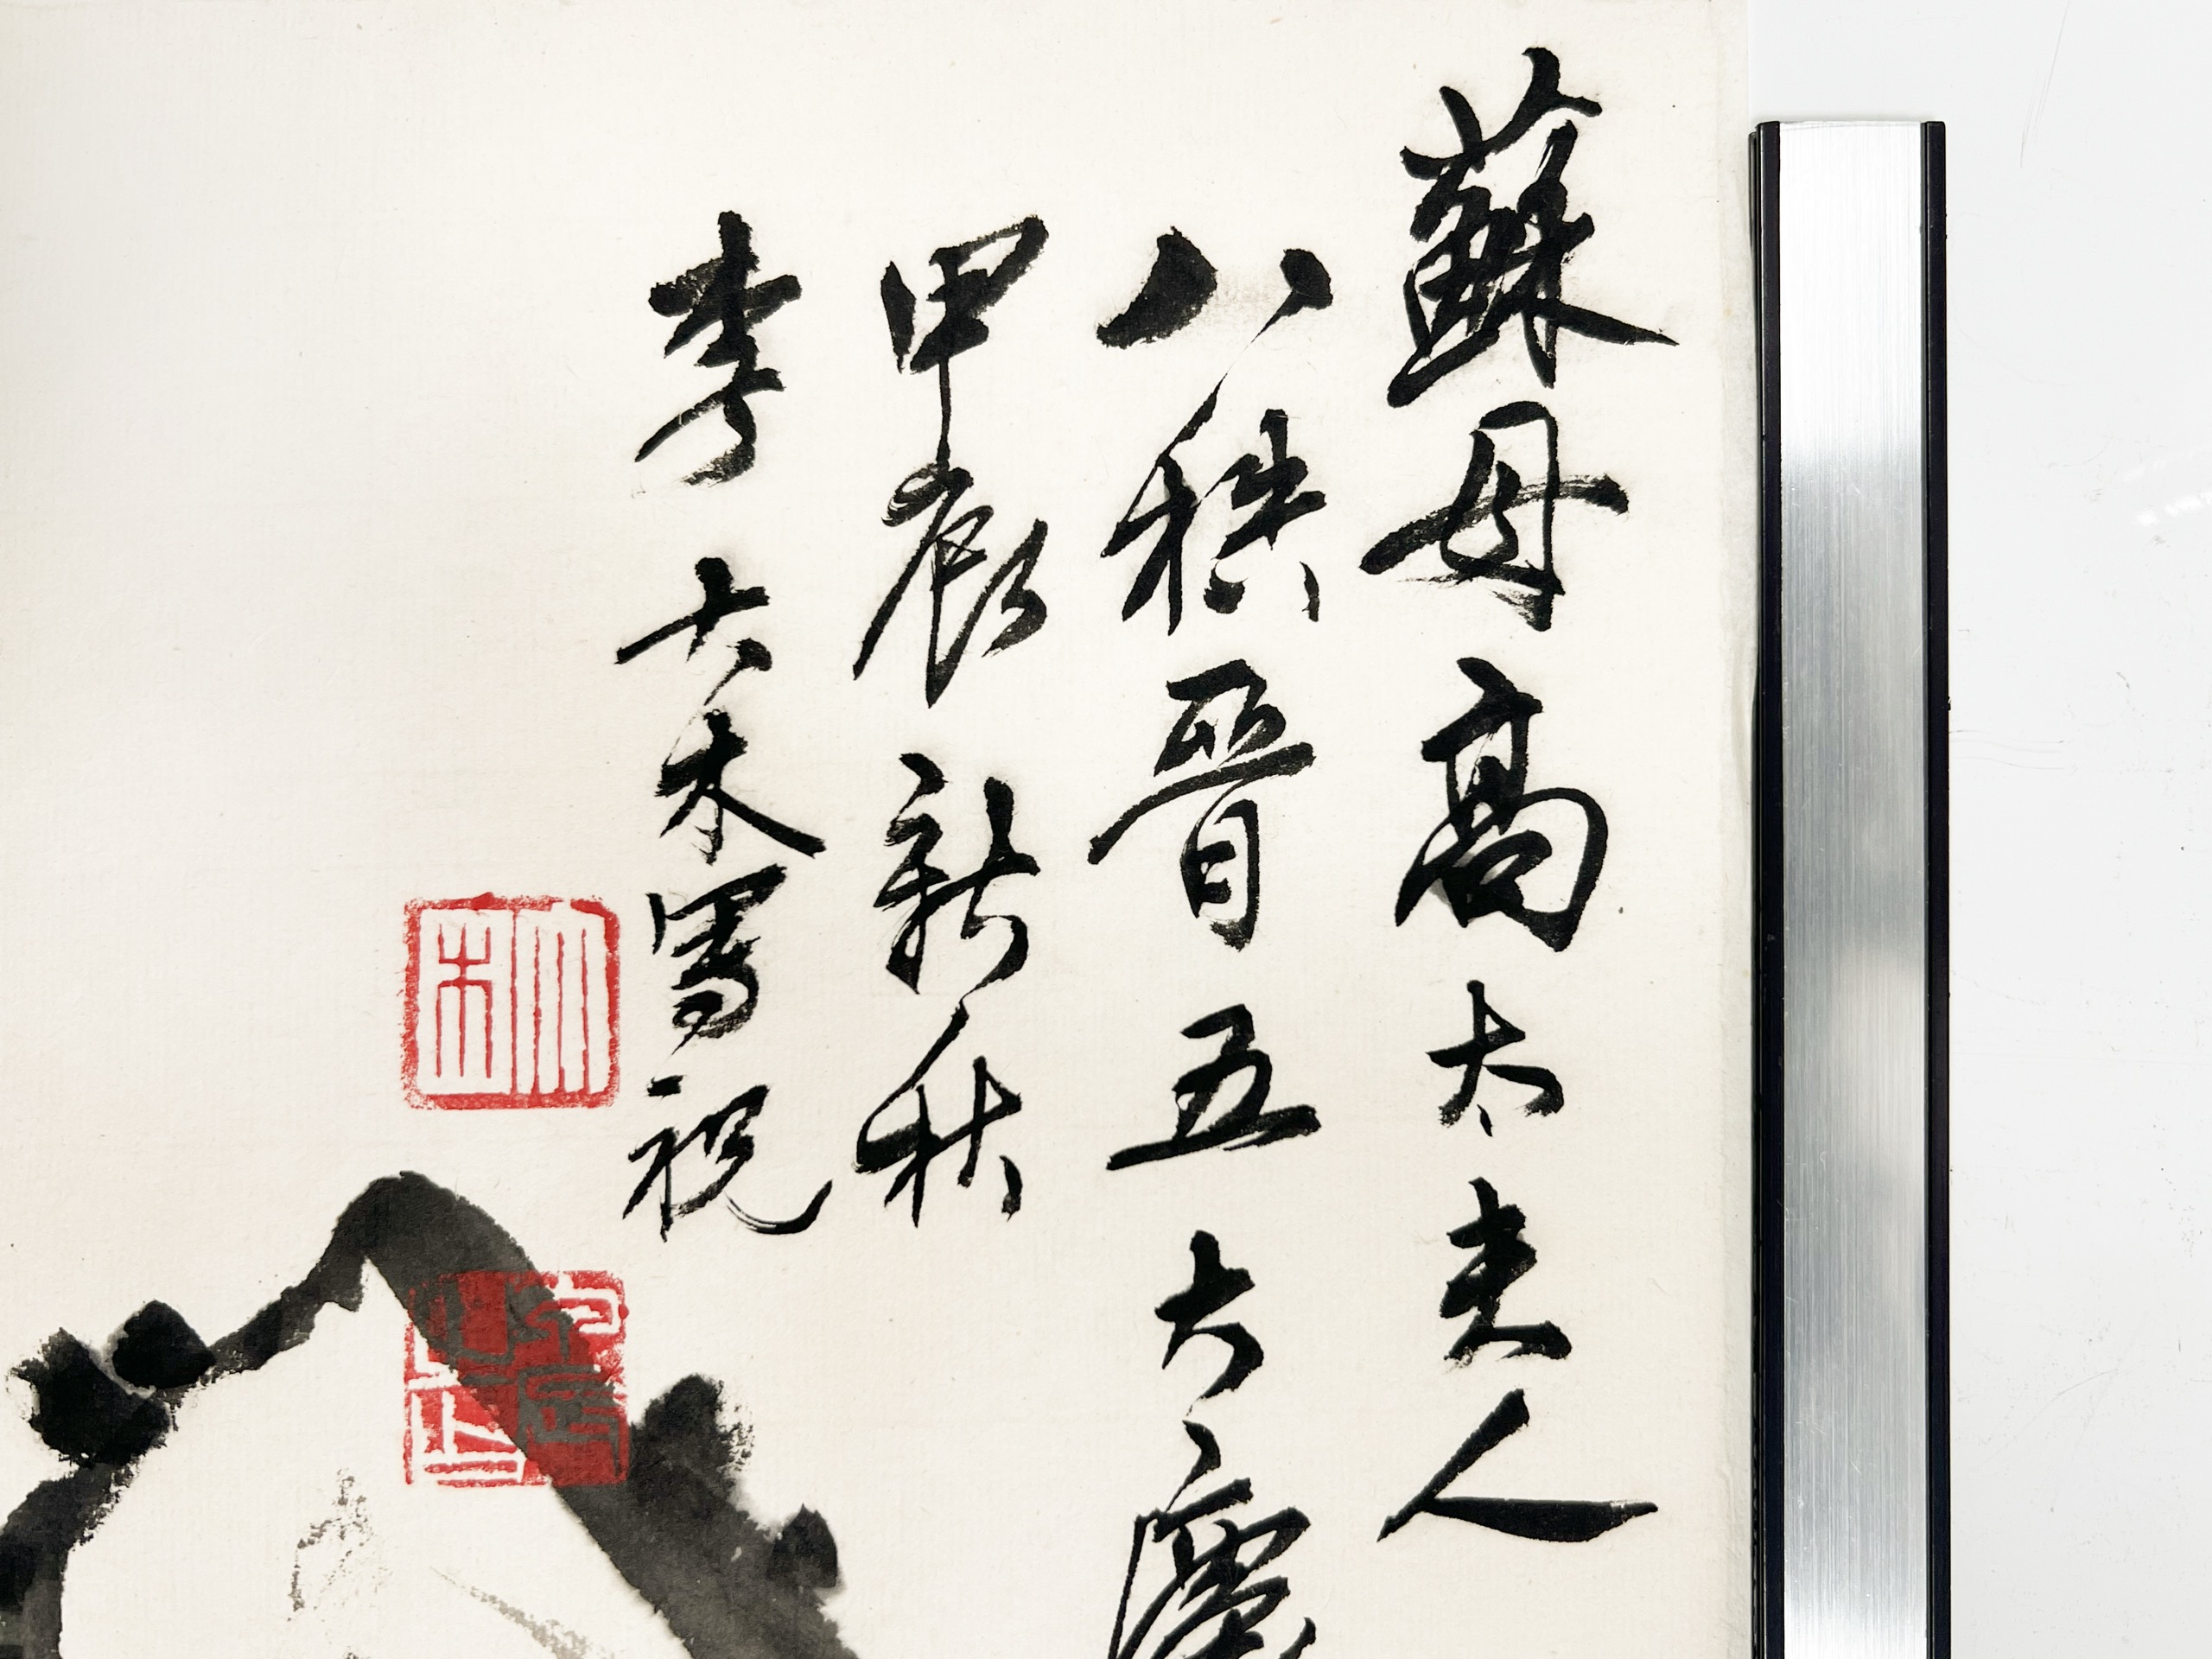 蘇母高太夫人
八秩晉五大慶
甲辰新秋
李大木寫祝
大木